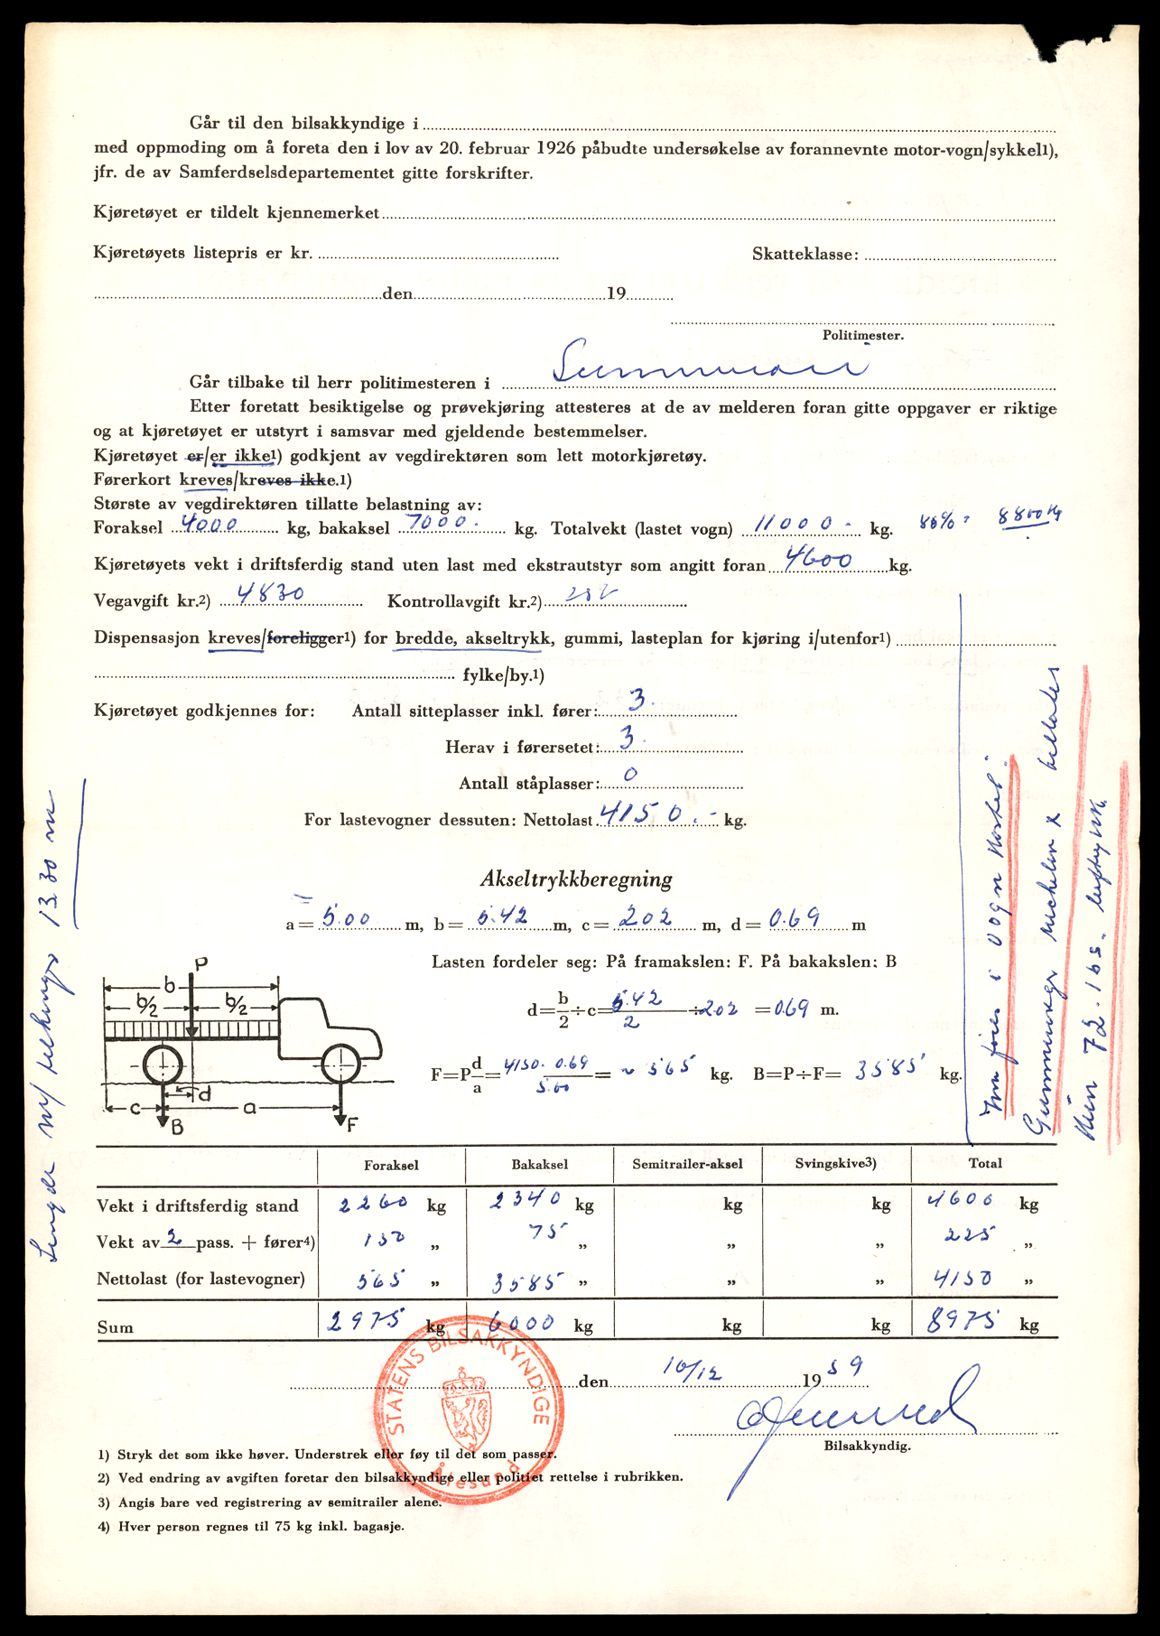 Går til den bilsakkyndige i
med oppmoding om å foreta den i lov av 20. februar 1926 påbudte undersøkelse av forannevnte motor-vogn/sykkel1),
jfr. de av Samferdselsdepartementet gitte forskrifter.
Kjøretøyet er tildelt kjennemerket
Kjøretøyets listepris er kr. Skatteklasse:
den 19
Politimester.
Går tilbake til herr politimesteren i
Etter foretatt besiktigelse og prøvekjøring attesteres at de av melderen foran gitte oppgaver er riktige
og at kjøretøyet er utstyrt i samsvar med gjeldende bestemmelser.
Kjøretøyet er/er ikke1) godkjent av vegdirektøren som lett motorkjøretøy.
Førerkort kreves/kreves ikke.1)
Største av vegdirektøren tillatte belastning av:
Foraksel 4000 kg, bakaksel 7000. kg. Totalvekt (lastet vogn) 11000.- kg. 80% = 8800 kg
Kjøretøyets vekt i driftsferdig stand uten last med ekstrautstyr som angitt foran 4600 kg.
Vegavgift kr.2) 4830 Kontrollavgift kr.2)
Dispensasjon kreves/foreligger1) for bredde, akseltrykk, gummi, lasteplan for kjøring i/utenfor1)
fylke/by.1)
Kjøretøyet godkjennes for: Antall sitteplasser inkl. fører: 3.
Herav i førersetet: 3.
Antall ståplasser: 0
For lastevogner dessuten: Nettolast 4150.- kg.
Akseltrykkberegning
a = 5.00 m, b = 5.42 m, c = 202 m, d = 0.69 m
Lasten fordeler seg: På framakslen: F. På bakakslen: B
d = b/2 ÷ c = 5.42/2 ÷ 202 = 069 m.
F = P d/a = 4150. 0.69/5.00 = ~ 565 kg. B = P ÷ F = 3585 kg.
P
b
b/2 b/2
d
c a
B F
Foraksel Bakaksel Semitrailer-aksel Svingskive3) Total
Vekt i driftsferdig stand 2260 kg 2340 kg kg kg 4600 kg
Vekt av 2 pass. + fører4) 150 „ 75 „ „ „ 225 „
Nettolast (for lastevogner) 565 „ 3585 „ „ „ 4150 „
Sum 2975 kg 6000 kg kg kg 8975 kg
den 10/12 1959
Bilsakkyndig.
STATENS BILSAKKYNDIGE
Ålesund
1) Stryk det som ikke høver. Understrek eller føy til det som passer.
2) Ved endring av avgiften foretar den bilsakkyndige eller politiet rettelse i rubrikken.
3) Angis bare ved registrering av semitrailer alene.
4) Hver person regnes til 75 kg inkl. bagasje.
Lengde m/ 13.30 m
i vogn kortet:
Michelin X tillates
72. lbs. lufttrykk.